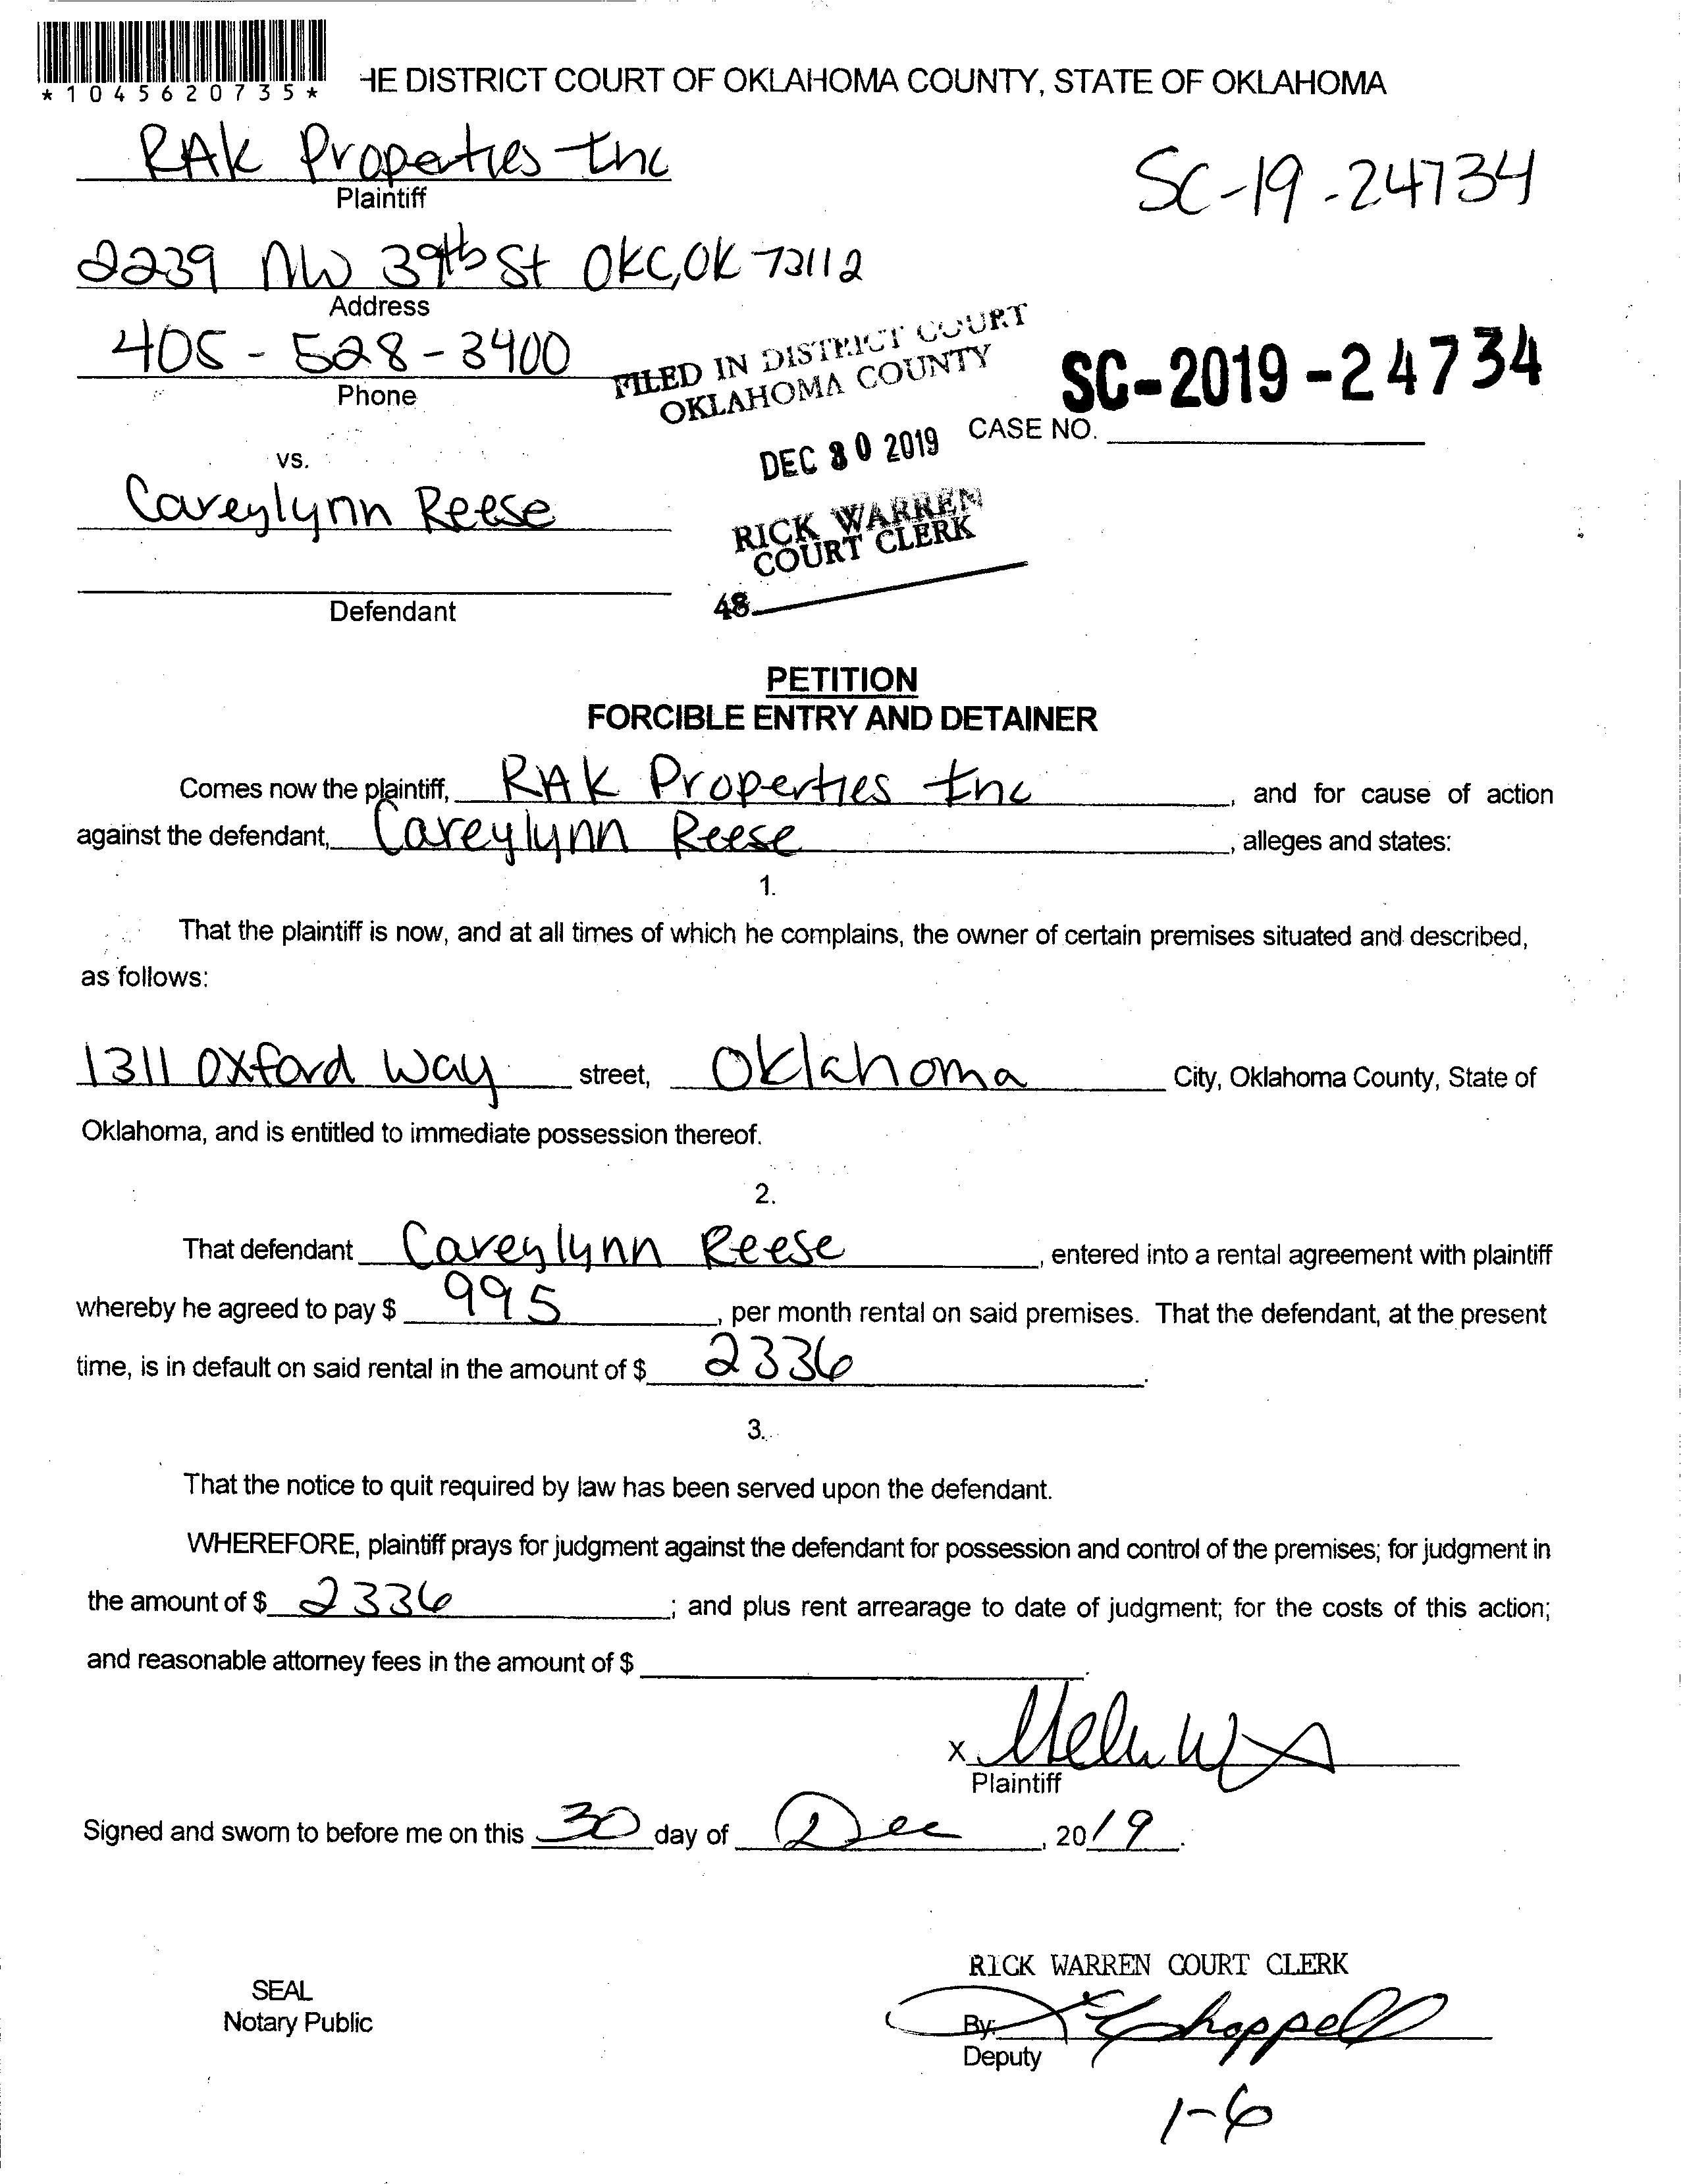 *1045620735*
HE DISTRICT COURT OF OKLAHOMA COUNTY, STATE OF OKLAHOMA
RAK Properties Inc
Plaintiff
SC-19-24734
2239 NW 39th St OKC, OK 73112
Address
405-528-3400
Phone
FILED IN DISTRICT COURT
OKLAHOMA COUNTY
SC-2019-24734
CASE NO.
DEC 30 2019
vs.
Careylynn Reese
RICK WARREN
COURT CLERK
48
Defendant
PETITION
FORCIBLE ENTRY AND DETAINER
Comes now the plaintiff, RAK Properties Inc, and for cause of action
against the defendant, Careylynn Reese, alleges and states:
1.
That the plaintiff is now, and at all times of which he complains, the owner of certain premises situated and described,
as follows:
1311 Oxford Way street, Oklahoma City, Oklahoma County, State of
Oklahoma, and is entitled to immediate possession thereof.
2.
That defendant Careylynn Reese, entered into a rental agreement with plaintiff
whereby he agreed to pay $ 995, per month rental on said premises. That the defendant, at the present
time, is in default on said rental in the amount of $ 2336.
3.
That the notice to quit required by law has been served upon the defendant.
WHEREFORE, plaintiff prays for judgment against the defendant for possession and control of the premises; for judgment in
the amount of $ 2336; and plus rent arrearage to date of judgment; for the costs of this action;
and reasonable attorney fees in the amount of $ .
X
Plaintiff
Signed and sworn to before me on this 30 day of Dec, 2019.
RICK WARREN COURT CLERK
SEAL
Notary Public
By:
Deputy
1-6